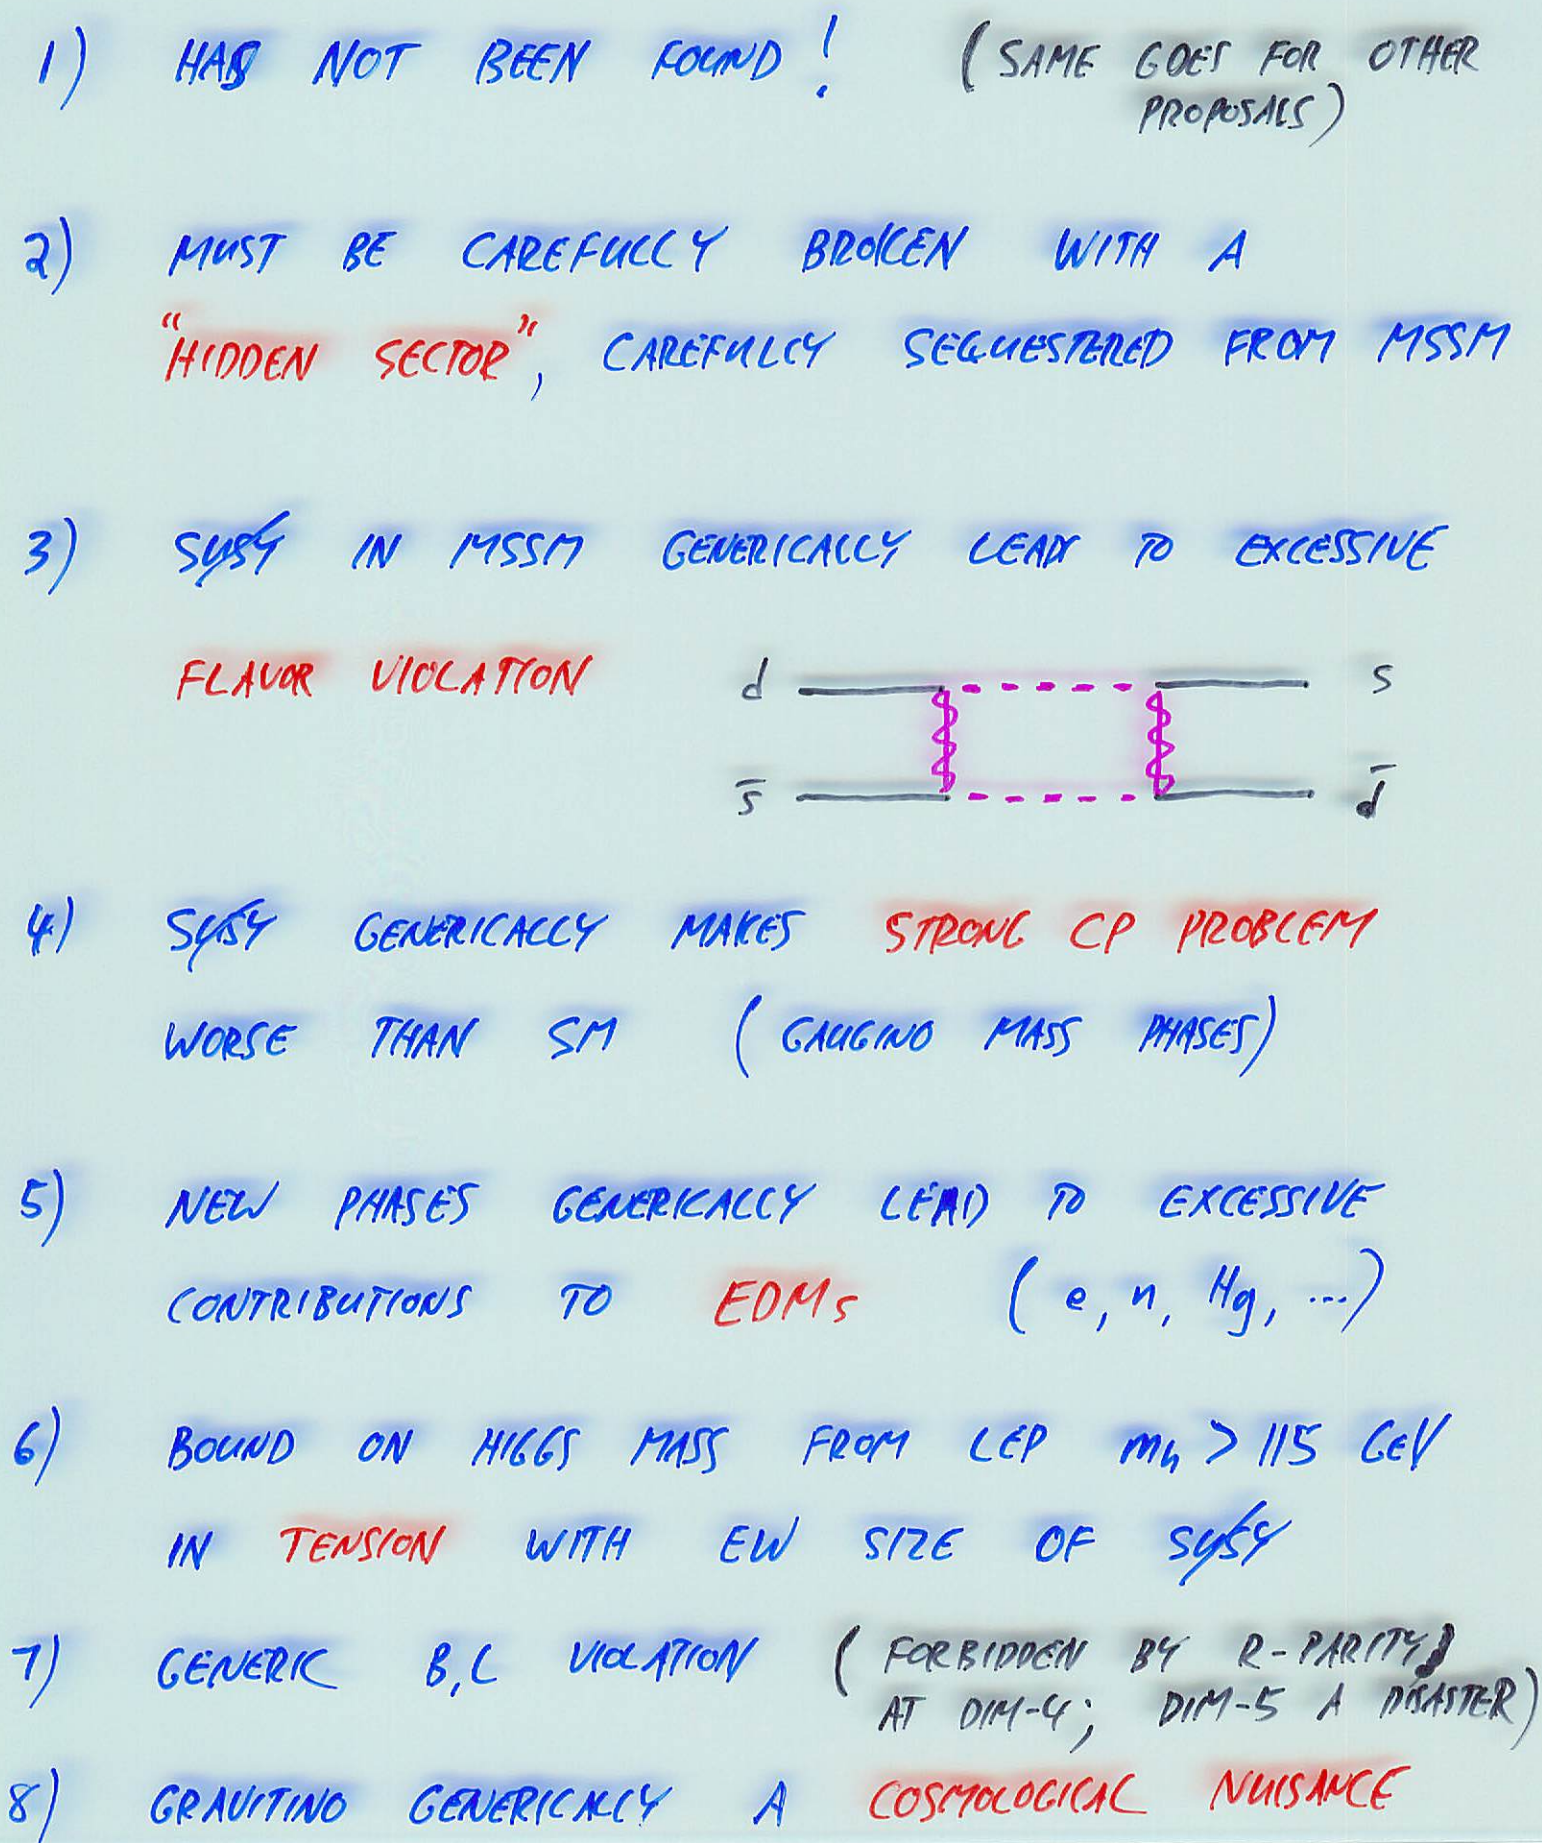 1) HAS NOT BEEN FOUND! (SAME GOES FOR OTHER
PROPOSALS)
2) MUST BE CAREFULLY BROKEN WITH A
"HIDDEN SECTOR", CAREFULLY SEQUESTERED FROM MSSM
3) SUSY IN MSSM GENERICALLY LEADS TO EXCESSIVE
FLAVOR VIOLATION
d s
s̅ d̅
4) SUSY GENERICALLY MAKES STRONG CP PROBLEM
WORSE THAN SM (GAUGINO MASS PHASES)
5) NEW PHASES GENERICALLY LEAD TO EXCESSIVE
CONTRIBUTIONS TO EDMs (e, n, Hg, ...)
6) BOUND ON HIGGS MASS FROM LEP m_h > 115 GeV
IN TENSION WITH EW SIZE OF SUSY
7) GENERIC B,L VIOLATION (FORBIDDEN BY R-PARITY
AT DIM-4; DIM-5 A DISASTER)
8) GRAVITINO GENERICALLY A COSMOLOGICAL NUISANCE